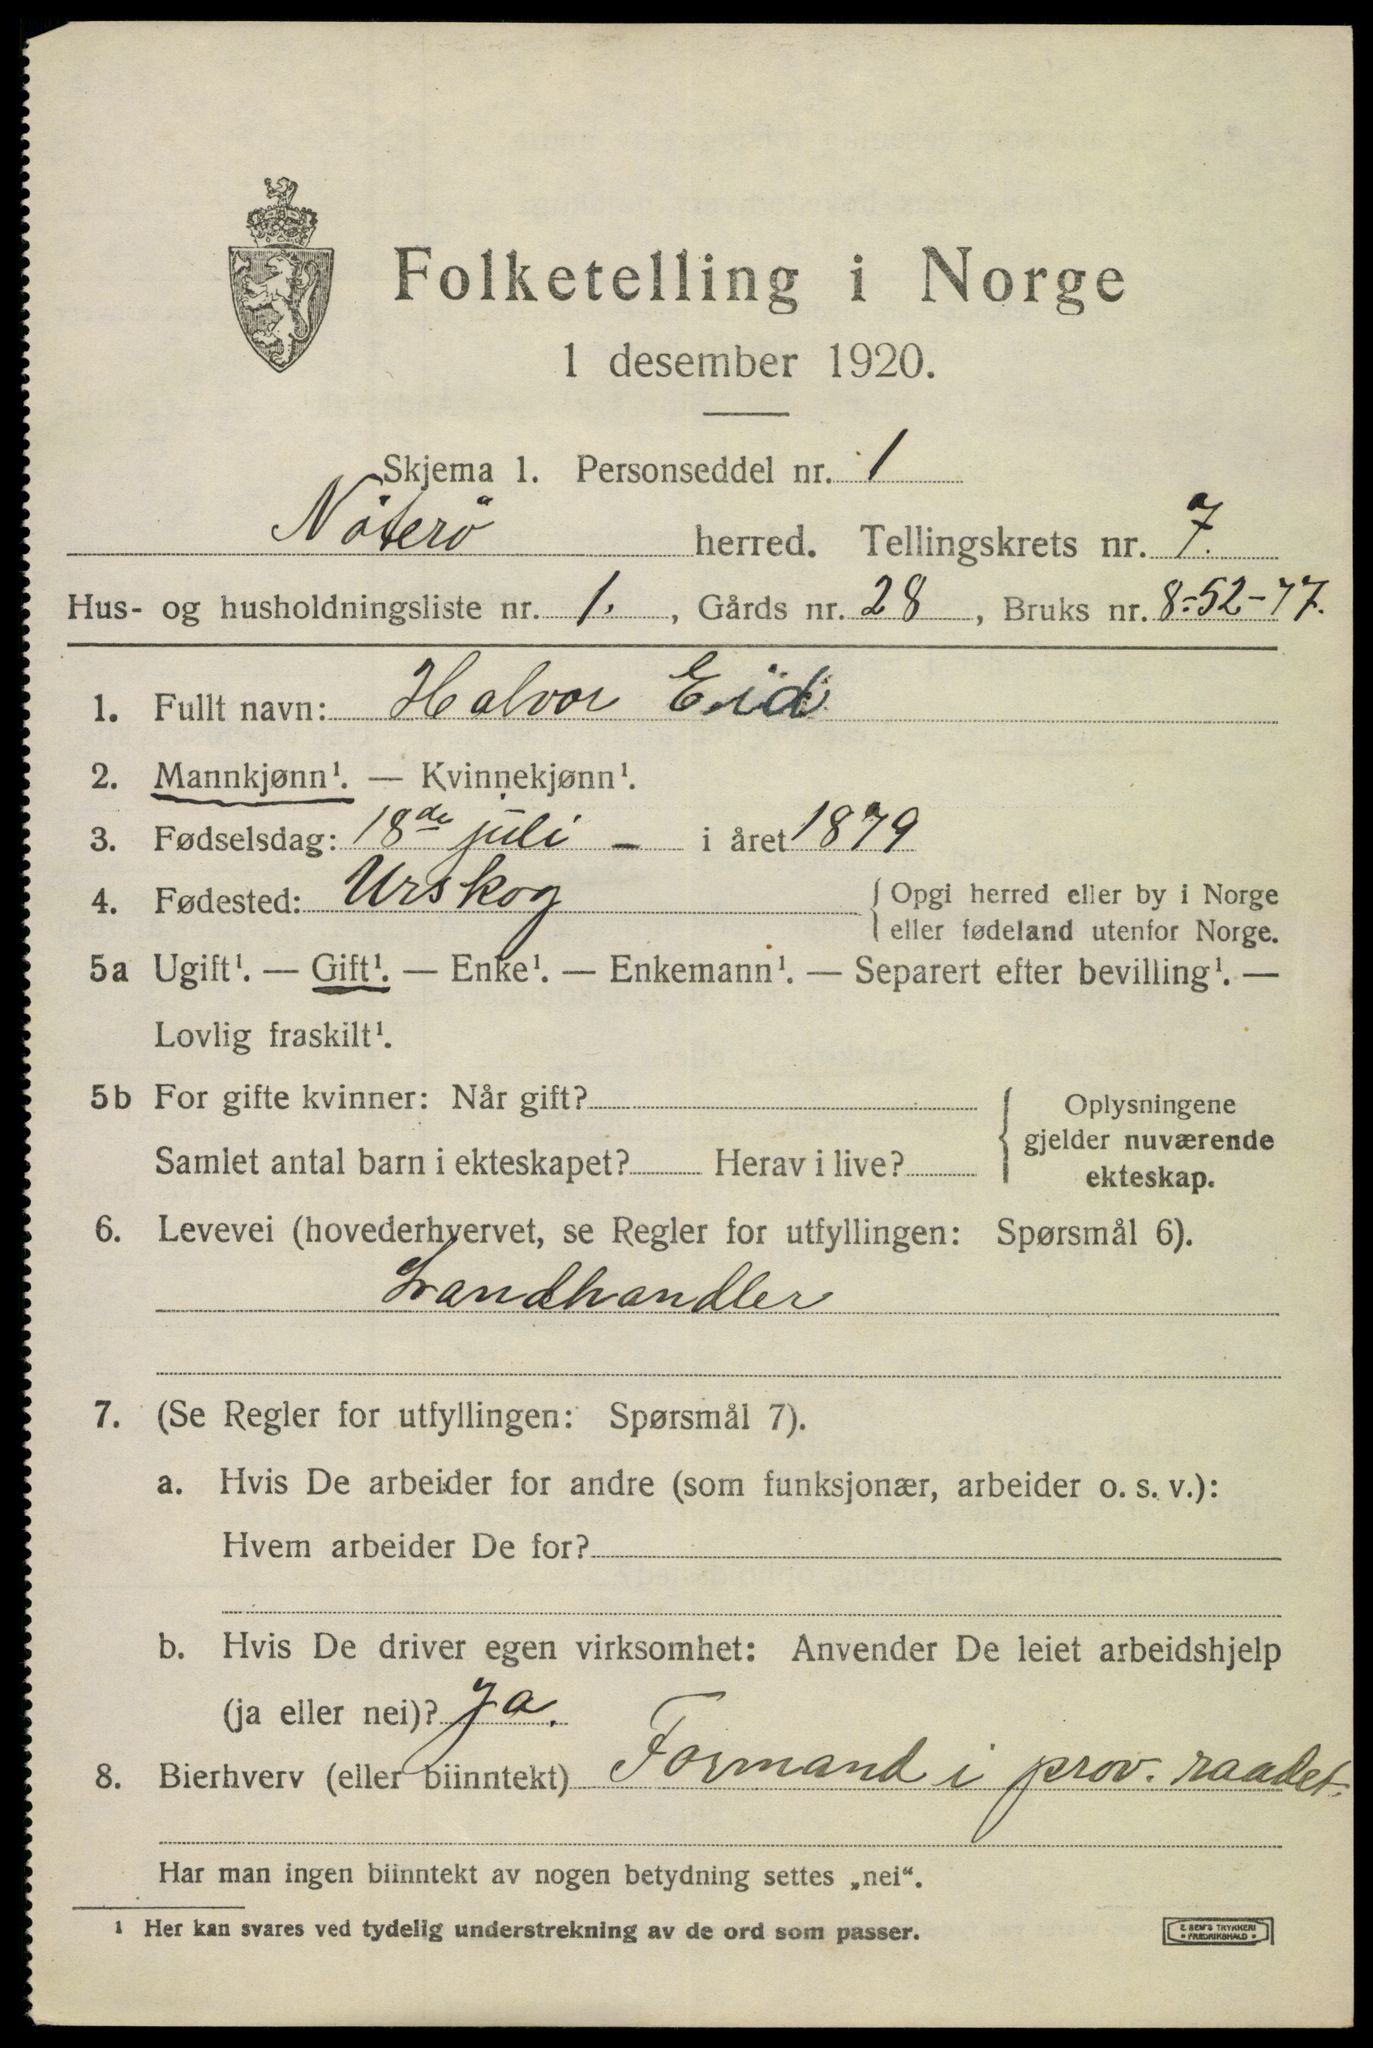 Folketelling i Norge
1 desember 1920.
Skjema 1. Personseddel nr. 1
Nöterö herred. Tellingskrets nr. 7.
Hus- og husholdningsliste nr. 1. , Gårds nr. 28 , Bruks nr. 8-52-77.
1. Fullt navn: Halvor Eid
2. Mannkjønn¹. — Kvinnekjønn¹.
3. Fødselsdag: 18de juli — i året 1879
4. Fødested: Urskog { Opgi herred eller by i Norge
eller fødeland utenfor Norge.
5a Ugift¹. — Gift¹. — Enke¹. — Enkemann¹. — Separert efter bevilling¹. —
Lovlig fraskilt¹.
5b For gifte kvinner: Når gift? { Oplysningene
gjelder nuværende
Samlet antal barn i ekteskapet? Herav i live?
ekteskap.
6. Levevei (hovederhvervet, se Regler for utfyllingen: Spørsmål 6).
Landhandler
7. (Se Regler for utfyllingen: Spørsmål 7).
a. Hvis De arbeider for andre (som funksjonær, arbeider o. s. v.):
Hvem arbeider De for?
b. Hvis De driver egen virksomhet: Anvender De leiet arbeidshjelp
(ja eller nei)? Ja.
8. Bierhverv (eller biinntekt) Formand i prov. raadet.
Har man ingen biinntekt av nogen betydning settes „nei“.
¹ Her kan svares ved tydelig understrekning av de ord som passer.
E. SEM'S TRYKKERI
• FREDRIKSHALD •